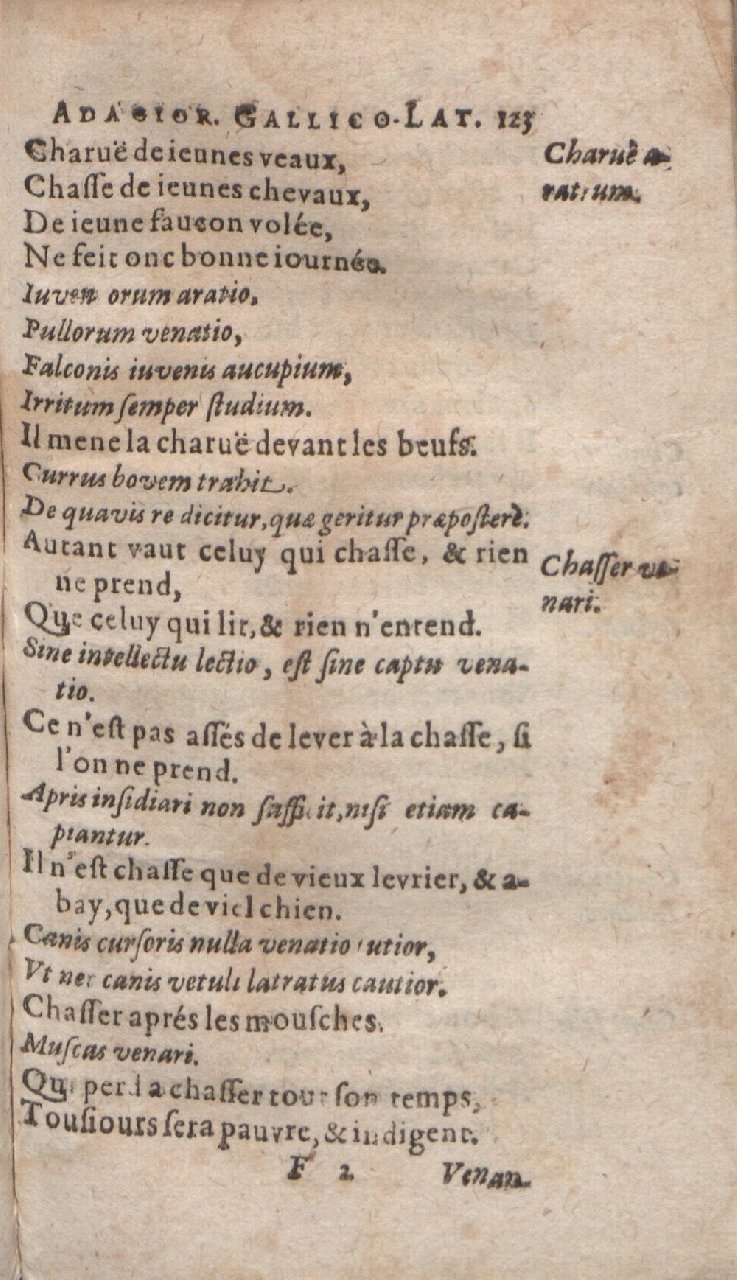 ADAGIOR. GALLICO-LAT. 123
Charuë de ieunes veaux,
Chasse de ieunes chevaux,
De ieune faucon volée,
Ne feit onc bonne iournée.
Iuven orum aratio,
Pullorum venatio,
Falconis iuvenis aucupium,
Irritum semper studium.
Il mene la charuë devant les beufs.
Currus bovem trahit.
De quavis re dicitur, quæ geritur præposterè.
Autant vaut celuy qui chasse, & rien
ne prend,
Que celuy qui lit, & rien n'entend.
Sine intellectu lectio, est sine captu vena-
tio.
Ce n'est pas assés de lever à la chasse, si
l'on ne prend.
Apris insidiari non sufficit, nisi etiam ca-
piantur.
Il n'est chasse que de vieux levrier, & a-
bay, que de viel chien.
Canis cursoris nulla venatio utior,
Vt nec canis vetuli latratus cautior.
Chasser aprés les mousches.
Muscas venari.
Qui perd a chasser tout son temps,
Tousiours sera pauvre, & indigent.
F 2. Venan-
Charuë a-
ratrum.
Chasser ve-
nari.